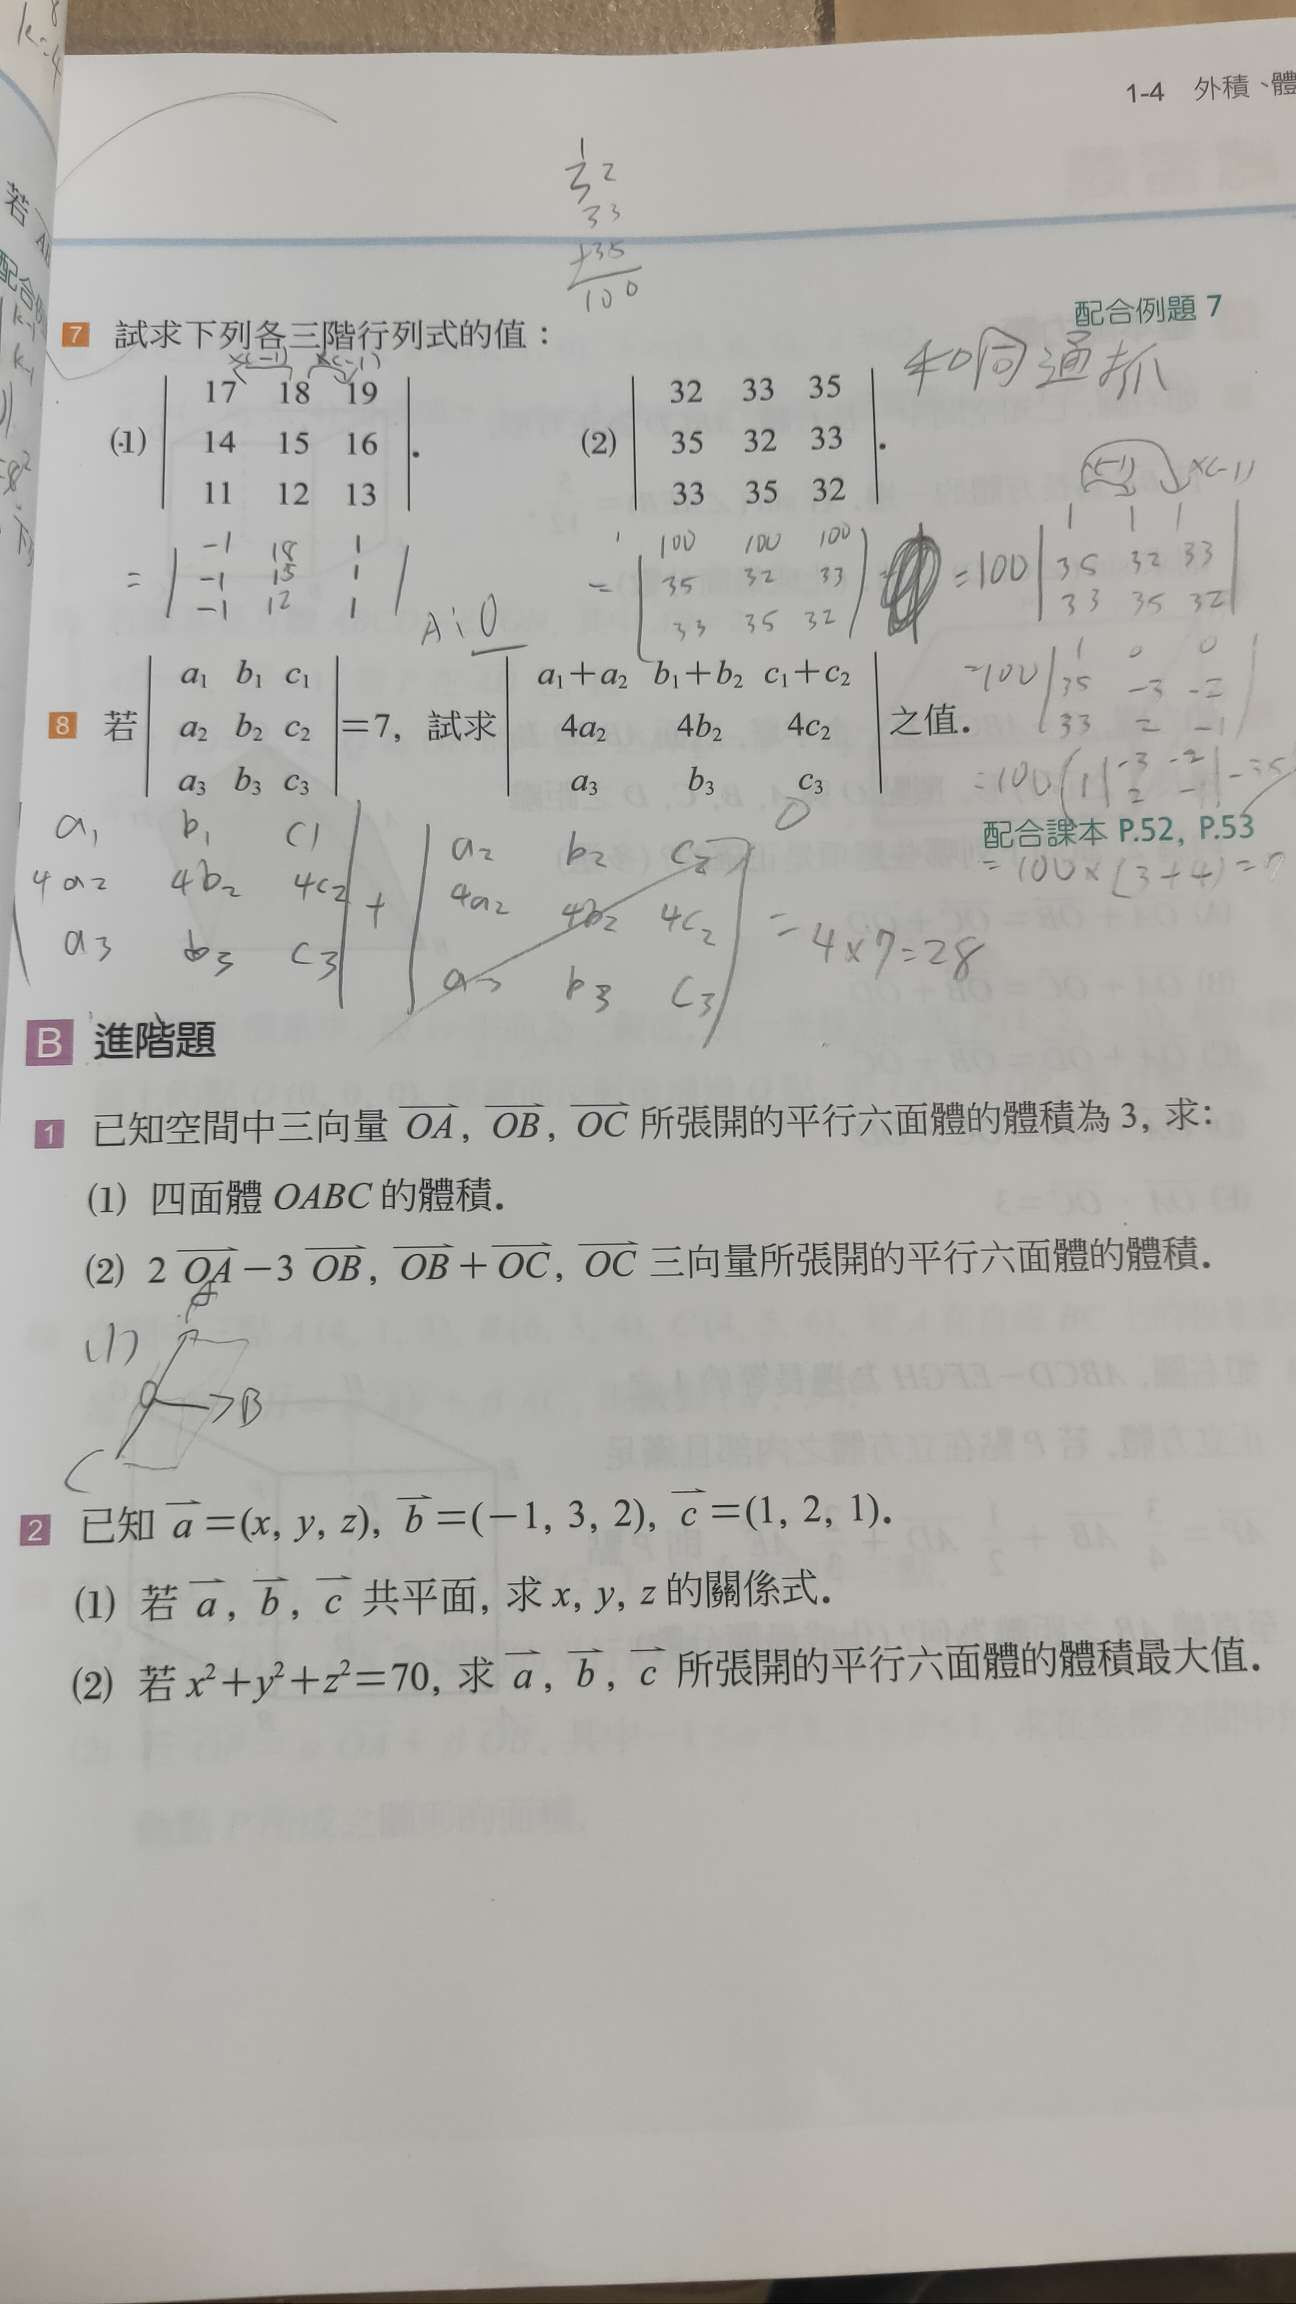 1-4 外積、體
1
32
33
+35
100
配合例題 7
和同通抓
7 試求下列各三階行列式的值：
×(-1) ×(-1)
(1) | 17 18 19 |
| 14 15 16 | .
| 11 12 13 |
= | -1 18 1 |
| -1 15 1 |
| -1 12 1 |
A: 0
(2) | 32 33 35 |
| 35 32 33 | .
| 33 35 32 |
= | 100 100 100 |
| 35 32 33 |
| 33 35 32 |
×(-1) ×(-1)
=100 | 1 1 1 |
| 35 32 33 |
| 33 35 32 |
=100 | 1 0 0 |
| 35 -3 -2 |
| 33 2 -1 |
=100 (1 | -3 -2 |
| 2 -1 |
=100×(3+4)=7
8 若 | a₁ b₁ c₁ |
| a₂ b₂ c₂ | =7, 試求
| a₃ b₃ c₃ |
| a₁+a₂ b₁+b₂ c₁+c₂ |
| 4a₂ 4b₂ 4c₂ | 之值.
| a₃ b₃ c₃ |
配合課本 P.52, P.53
| a₁ b₁ c₁ |
| 4a₂ 4b₂ 4c₂ |
| a₃ b₃ c₃ |
+ | a₂ b₂ c₂ | 0
| 4a₂ 4b₂ 4c₂ |
| a₃ b₃ c₃ |
= 4×7=28
B 進階題
1 已知空間中三向量 OA, OB, OC 所張開的平行六面體的體積為 3, 求:
(1) 四面體 OABC 的體積.
(2) 2 OA－3 OB, OB＋OC, OC 三向量所張開的平行六面體的體積.
(1)
A
O
B
C
2 已知 a=(x, y, z), b=(−1, 3, 2), c=(1, 2, 1).
(1) 若 a, b, c 共平面, 求 x, y, z 的關係式.
(2) 若 x²+y²+z²=70, 求 a, b, c 所張開的平行六面體的體積最大值.